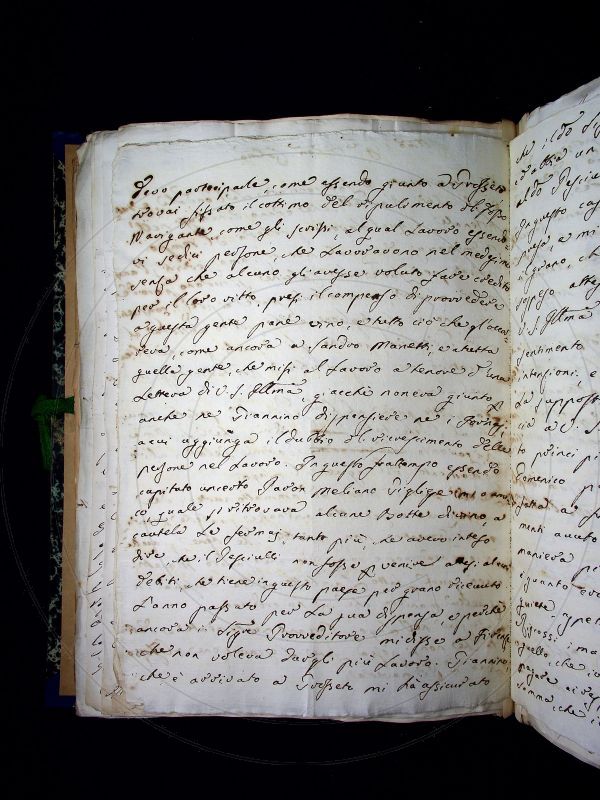 Devo partecipale, come essendo giunto a Grosseto
trovai fissato il cottimo del ripulimento del fosso
Navigante, come gli scrissi, al qual Lavoro essendo
vi sedici persone, che Lavoravono nel medesimo
senza che alcuno gli avesse voluto fare credito
per il loro vitto, presi il compenso di provvedere
a questa gente pane, vino, e tutto ciò che gl'occor
reva, come ancora a Sandro Manetti, e a tutta
quella gente, che misi al Lavoro a tenore d'una
Lettera di V. S. Illma giacchè non era giunto
anche ne Giannino dispensiere ne i
a cui aggiunga il dubbio di ricrescimento delle
persone nel Lavoro. In questo frattempo essendo
capitato un certo Pavon
co, quale si ritrovava alcune Botte di vino, a
cautela Le fermai tanto più, che avevo inteso
dire, che il Pesciulli non fosse p venire attesi alcuni
debiti, che tiene in questo paese per grano ricevuto
L'anno passato per La sua dispensa, e perchè
ancora il Sigre Provveditore mi disse a Firenze
che non voleva dargli più Lavoro. Giannino
che è arrivato a Grosseto mi hà assicurato
che il do
d'altra un
al do Pesciu
In questo cas
preso, e mi
il grano, ch
sopeso attes
V. S. Illma
sentimento
intenzioni, e
La suppost
cia a V. S.
to princi pi
Domenico
fatta a
menti avuto
maniera pi
quanto eve
quiete,
Grossi, i ma
quello, che io
pagare ai
somma, che i